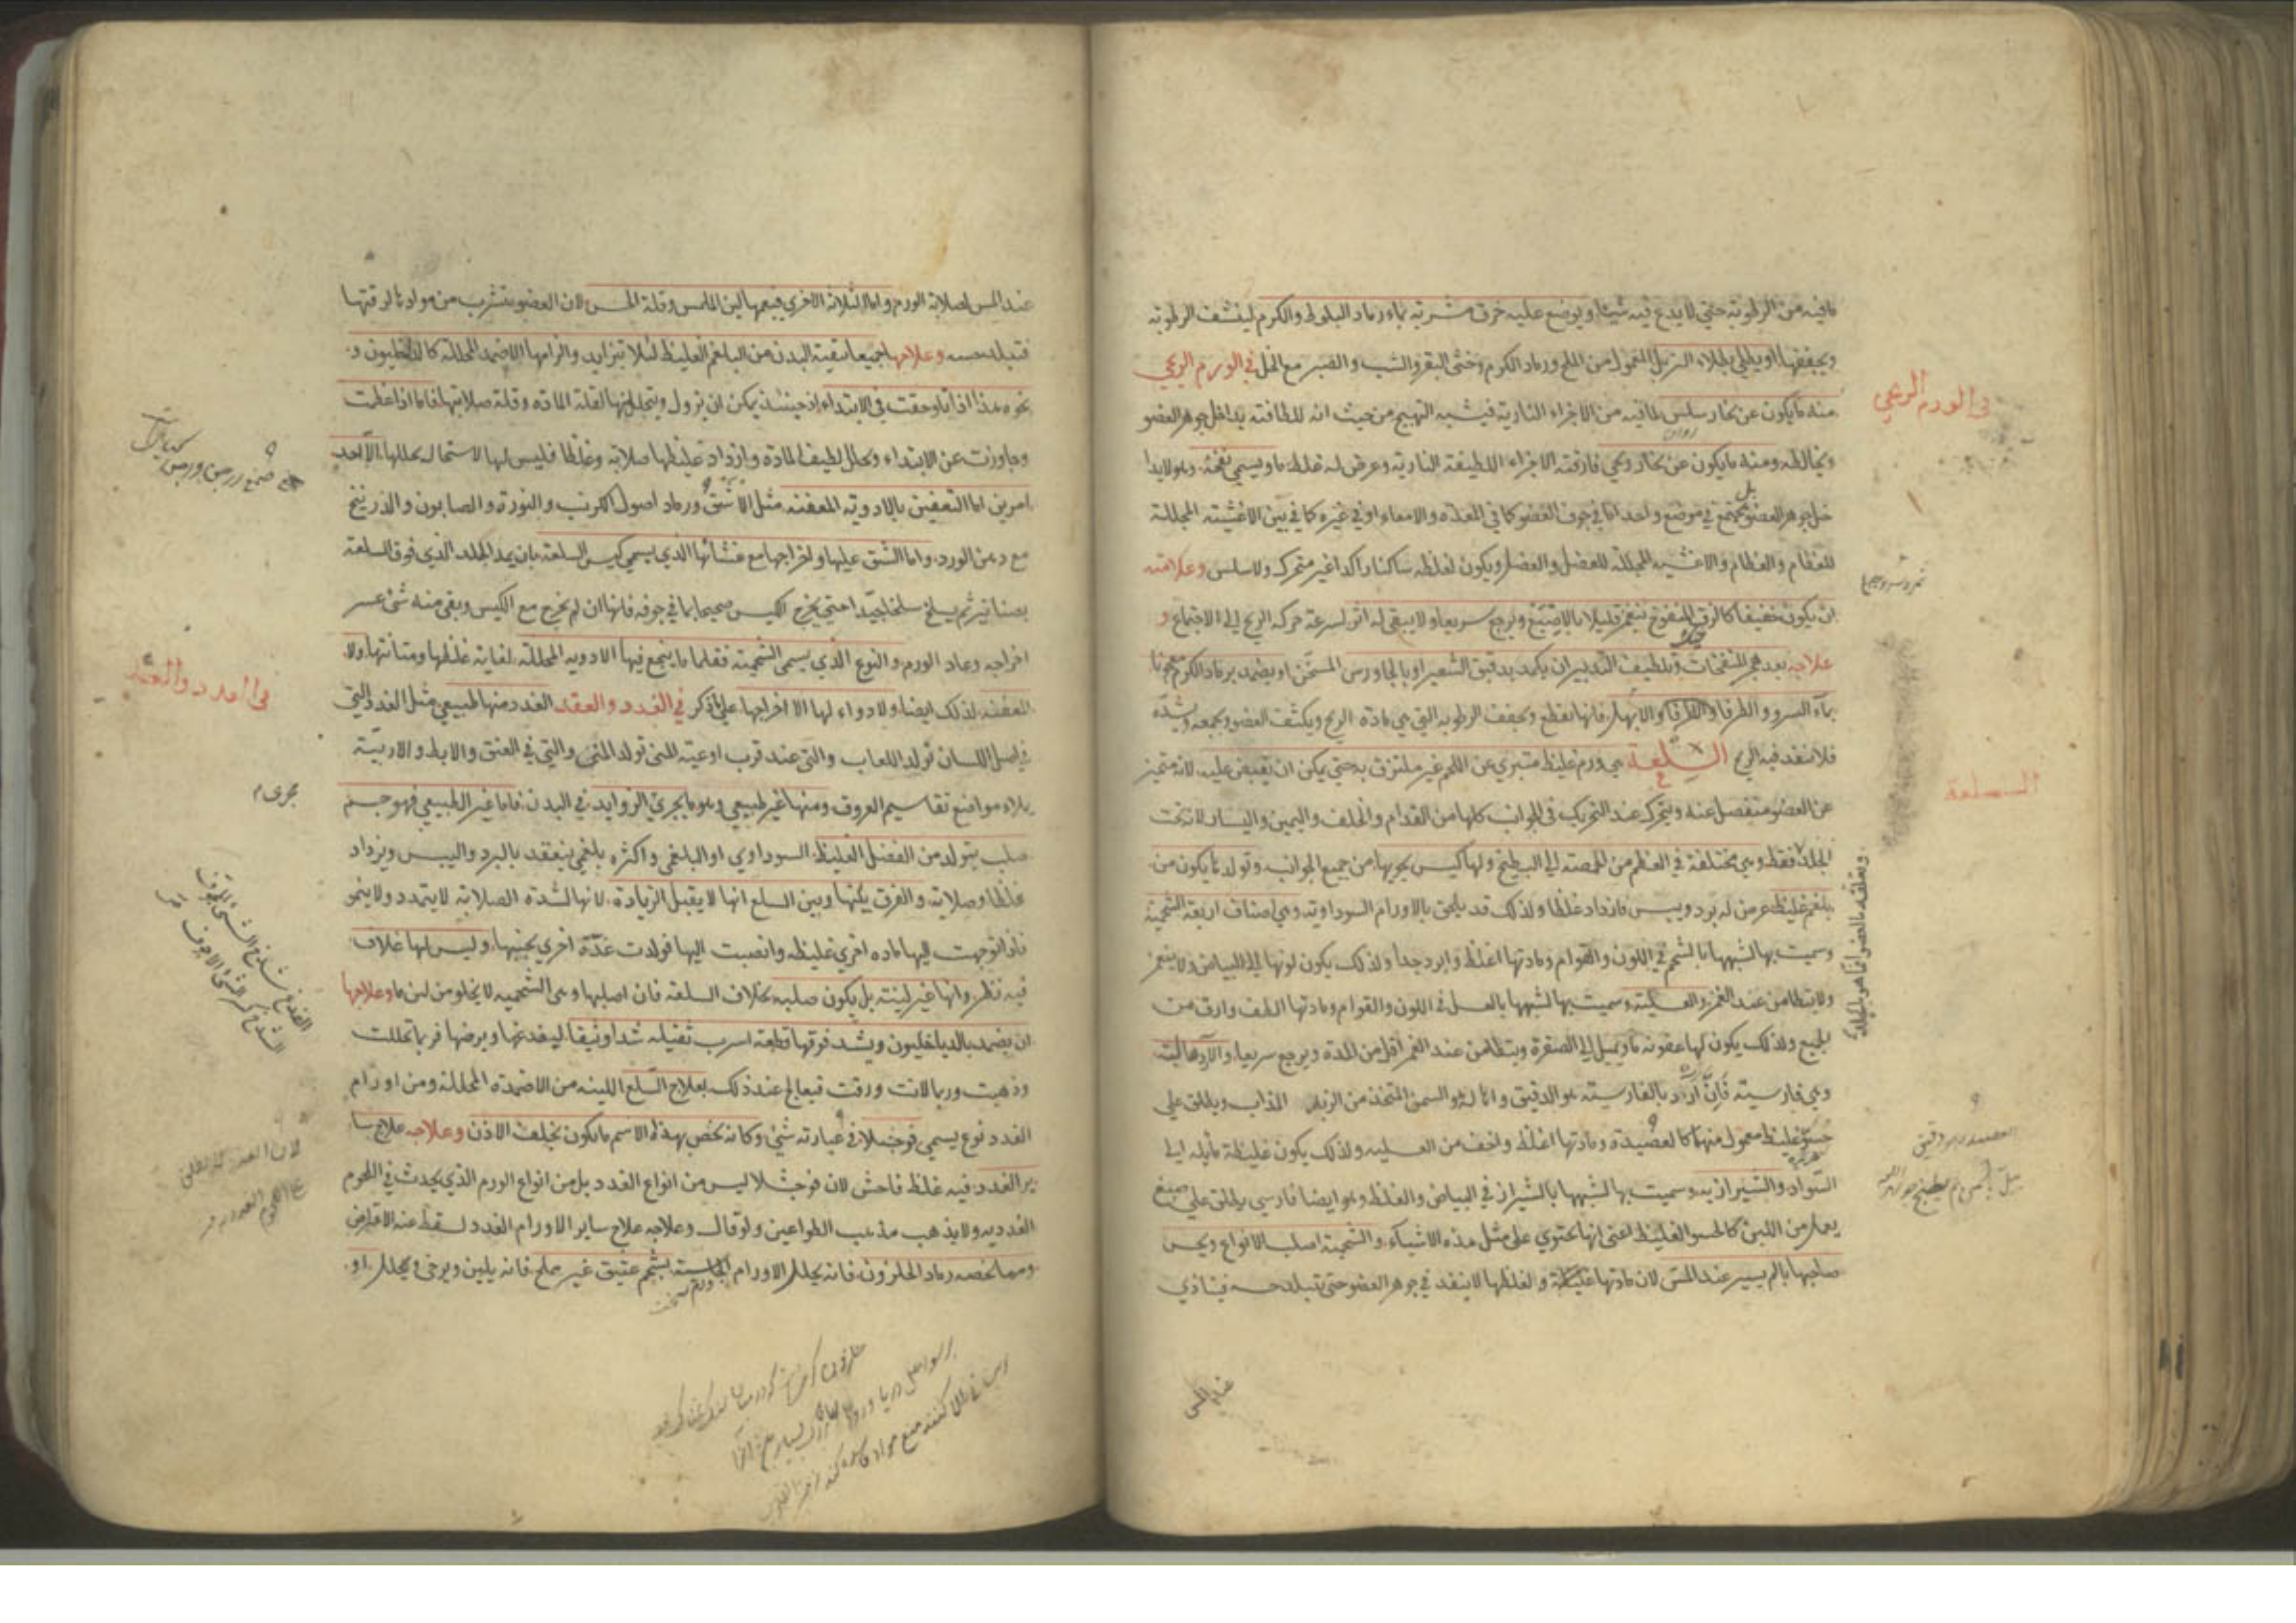 مافيه من الرطوبة حتى لا يدع فيه شيئا ويوضع عليه خرق مشربة بماء رماد البلوط والكرم لينشف الرطوبة
ويجففها او يطلى بطلاء الترهل المعمول من الملح ورماد الكرم وخثى البقر والشب والصبر مع الخل في الورم الريحي
في الورم الريحي
منه ما يكون عن بخار سلس لما فيه من الاجزاء النارية فيشبه التهيج من حيث انه للطافته يداخل جوهر العضو
ويخالطه ومنه ما يكون عن بخار ريحي فارقته الاجزاء اللطيفة النارية وعرض له غلظ ما ويسمى نفخة وهو لا يدا
خل جوهر العضو بل يجتمع في موضع واحد اما في جوف العضو كما في المعدة والامعاء او في غيره كما في بين الاغشية المجللة
للعظام والعظام والاغشية المجللة للعضل والعضل ويكون لغلظه ساكنا راكدا غير متحرك ولا سلس وعلامته
ان يكون خفيفا كالزق المنفوخ ينغمز قليلا بالاصبع ويرجع سريعا ولا يبقى له اثر لسرعة حركة الريح الى الاجتماع و
علاجه بعد هجر المنفخات وتلطيف التدبير ان يكمد بدقيق الشعير او بالجاورس المسخن او يضمد برماد الكرم معجونا
بماء السرو والطرفا والابهل فانها تقطع وتجفف الرطوبة التي هي مادة الريح ويكثف العضو ويجمعه ويشده
فلا تنفد فيه الريح السلعة هي ورم غليظ متبري عن اللحم غير ملتزق به حتى يمكن ان يقبض عليه لانه متميز
السلعة
عن العضو منفصل عنه ويتحرك عند التحريك في الجوانب كلها من القدام والخلف واليمين واليسار لانه تحت
الجلد فقط وهي مختلفة في العظم من الحمصة الى البطيخ ولها كيس يحويها من جميع الجوانب وتولد ما يكون من
بلغم غليظ عرض له برد ويبس فازداد غلظا ولذلك قد يلحق بالاورام السوداوية وهي اصناف اربعة الشحمية
وسميت بها لشبهها بالشحم في اللون والقوام ومادتها اغلظ وابرد جدا ولذلك يكون لونها الى البياض ولا ينغمز
ولا يتطامن عند الغمز والعسلية وسميت بها لشبهها بالعسل في اللون والقوام ومادتها الطف وارق من
الجميع ولذلك يكون لها عفونة ما ويميل الى الصفرة ويتطامن عند الغمز اقل من المدة ويرجع سريعا والاردهالية
وهي فارسية فان ارد بالفارسية هو الدقيق وهاله هو السمن المتخذ من الزبد المذاب ويطلق على
حسو غليظ معمول منهما كالعصيدة ومادتها اغلظ واخف من العسلية ولذلك يكون غليظة مايلة الى
السواد والشيرازية وسميت بها لشبهها بالشيراز في البياض والغلظ وهو ايضا فارسي يطلق على صبغ
يعمل من اللبن كالحسو الغليظ اعنى انها تحتوي على مثل هذه الاشياء والشحمية اصلب الانواع ويحس
صاحبها بالم يسير عند المس لان مادتها غليظة ولغلظها لا ينفد في جوهر العضو حتى يتبلد حسه فيتاذي
عند المس
عند المس لصلابة الورم واما الثلاثة الاخرى فيتبعها لين الملمس وقلة الحس لان العضو يتشرب من موادها لرقتها
فيتبلد حسه وعلاجها جميعا تنقية البدن من البلغم الغليظ لئلا يتزايد والزامها الاضمدة المحللة كالداخليون و
نحوه هذا اذا ما لوحقت في الابتداء اذ حينئذ يمكن ان يزول ويتحلل لقلة المادة وقلة صلابتها فاما اذا عظمت
وجاوزت عن الابتداء وتحلل لطيف المادة وازداد غليظها صلابة وغلظا فليس لها لاستحالة تحللها الا احد
امرين اما التعفين بالادوية المعفنة مثل الاشق ورماد اصول الكرنب والنورة والصابون والزرنيخ
مع دهن الورد واما الشق عليها واخراجها مع غشائها الذي يسمى كيس السلعة بان يمد الجلد الذي فوق السلعة
بصنانير ثم يسلخ سلخا جيدا حتى يخرج الكيس صحيحا بما في جوفه فانها ان لم يخرج مع الكيس وبقي منه شئ عسر
اخراجه وعاد الورم والنوع الذي يسمى الشحمية فقلما ما ينجع فيها الادوية المحللة لغاية غلظها ومتانتها ولا
المعفنة لذلك ايضا ولا دواء لها الا اخراجها على ما ذكر في الغدد والعقد الغدد منها طبيعي مثل الغدد التي
في الغدد والعقد
في اصل اللسان تولد اللعاب والتي عند قرب اوعية المنى تولد المنى والتي في العنق والابط والاربية
يملاء مواضع تقاسيم العروق ومنها غير طبيعي وهو ما يجري الزوايد في البدن فاما غير الطبيعي فهو جسم
مجرى م
صلب يتولد من الفضل الغليظ السوداوي او البلغمي واكثره بلغمي ينعقد بالبرد واليبس ويزداد
غلظا وصلابة والفرق بينها وبين السلع انها لا يقبل الزيادة لانها لشدة الصلابة لا يتمدد ولا ينمو
فاذا توجهت اليها مادة اخرى غليظة وانصبت اليها فولدت غدة اخرى بجنبها وليس لها غلاف
فيه نظر وانها غير لينة بل يكون صلبة بخلاف السلعة فان اصلبها وهي الشحمية لا يخلو من لين ما وعلاجها
ان يضمد بالداخليون ويشد فوقها قطعة اسرب ثقيلة شدا وثيقا ليفدغها ويرضها فربما تحللت
وذهبت وربما لانت ورقت فيعالج عند ذلك بعلاج السلع اللينة من الاضمدة المحللة ومن اورام
الغدد نوع يسمى فوجثلا في عبارته شئ وكانه يخص بهذا الاسم ما يكون بخلف الاذن وعلاجه علاج سا
ير الغدد فيه غلظ فاحش لان فوجثلا ليس من انواع الغدد بل من انواع الورم الذي يحدث في اللحوم
الغددية ولا يذهب مذهب الطواعين ولو قال وعلاجه علاج ساير الاورام الغدد لسقط عنه الاقتراض
ومما يخصه رماد الحلزون فانه يحلل الاورام الجاسية بشحم عتيق غير مملح فانه يلين ويرخى ويحلل او